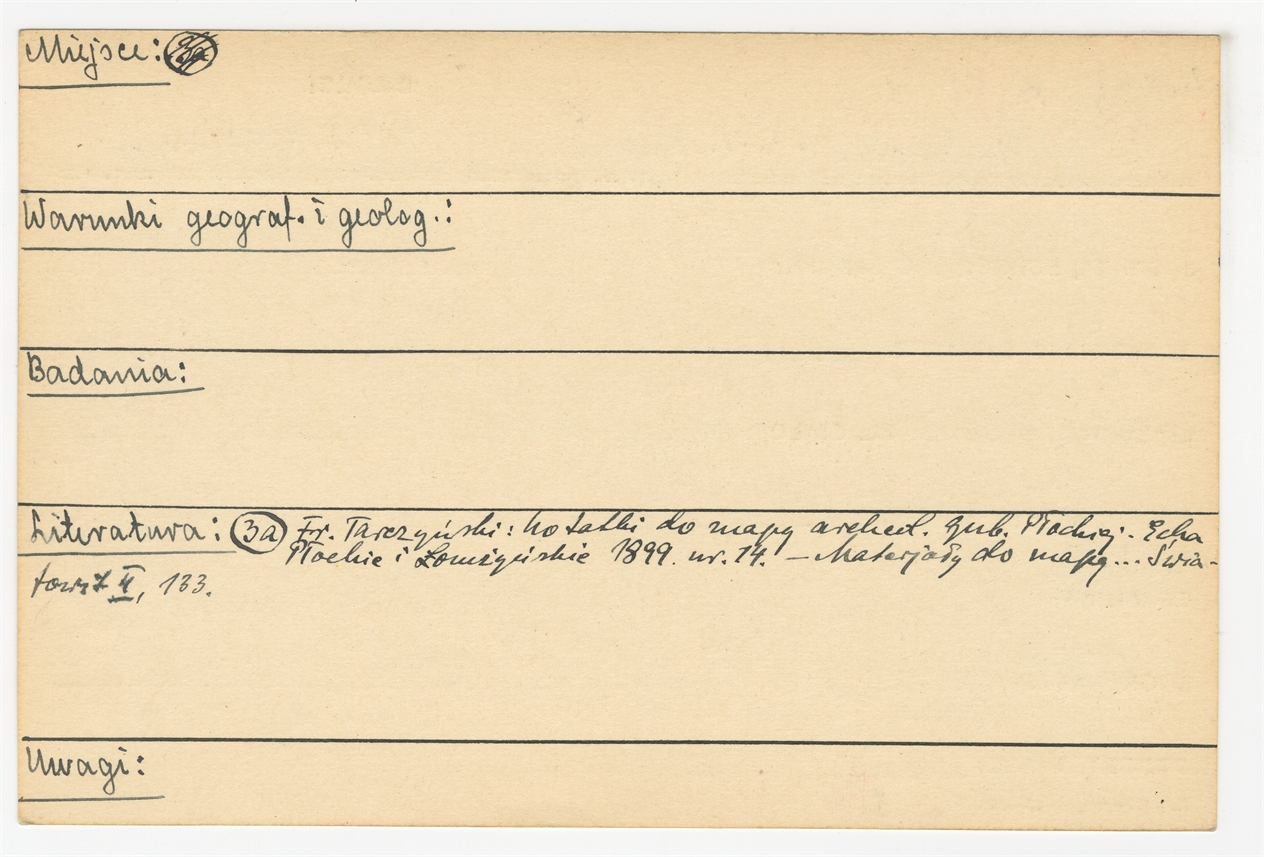 Miejsce:
Warunki geograf. i geolog.:
Badania:
Literatura: (3a) Fr. Tarczyński: Notatki do mapy archeol. gub. Płockiej. Echa
Płockie i Łomżyńskie 1899. nr. 14. – Materjały do mapy... Świa-
towit II, 133.
Uwagi: